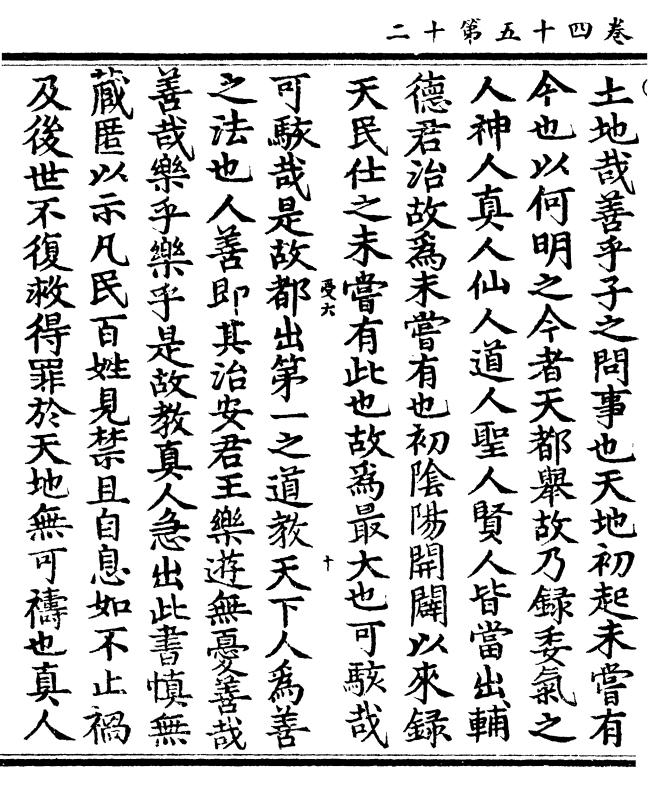 卷四十五第十二
土地哉善乎子之問事也天地初起未嘗有
今也以何明之今者天都舉故乃録委氣之
人神人真人仙人道人聖人賢人皆當出輔
德君治故爲未嘗有也初陰陽開闢以來録
天民仕之未嘗有此也故爲最大也可駭哉
憂六
十
可駭哉是故都出第一之道教天下人爲善
之法也人善即其治安君王樂遊無憂善哉
善哉樂乎樂乎是故教真人急出此書慎無
藏匿以示凡民百姓見禁且自息如不止禍
及後世不復救得罪於天地無可禱也真人